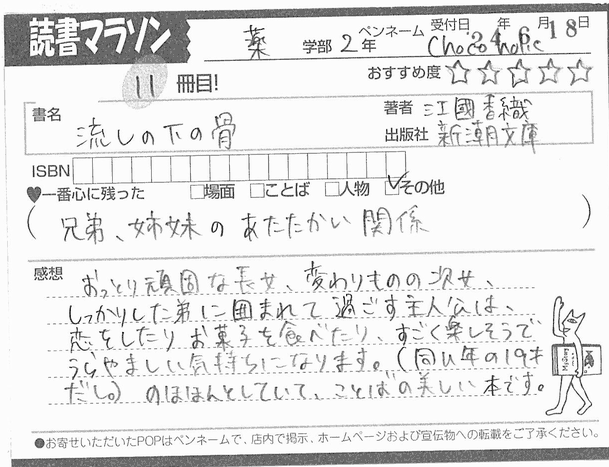 読書マラソン
薬 学部 2年 ペンネーム Chocoholic 受付日 24年6月18日
11冊目! おすすめ度 ☆☆☆☆☆
書名 流しの下の骨
著者 江國香織
出版社 新潮文庫
ISBN
♥一番心に残った □場面 □ことば □人物 ☑その他
(兄弟、姉妹のあたたかい関係)
感想 おっとり頑固な長女、変わりものの次女、
しっかりした弟に囲まれて過ごす主人公は、
恋をしたりお菓子を食べたり、すごく楽しそうで
うらやましい気持ちになります。(同い年の19才
だし。) のほほんとしていて、ことばの美しい本です。
●お寄せいただいたPOPはペンネームで、店内で掲示、ホームページおよび宣伝物への転載をご了承ください。